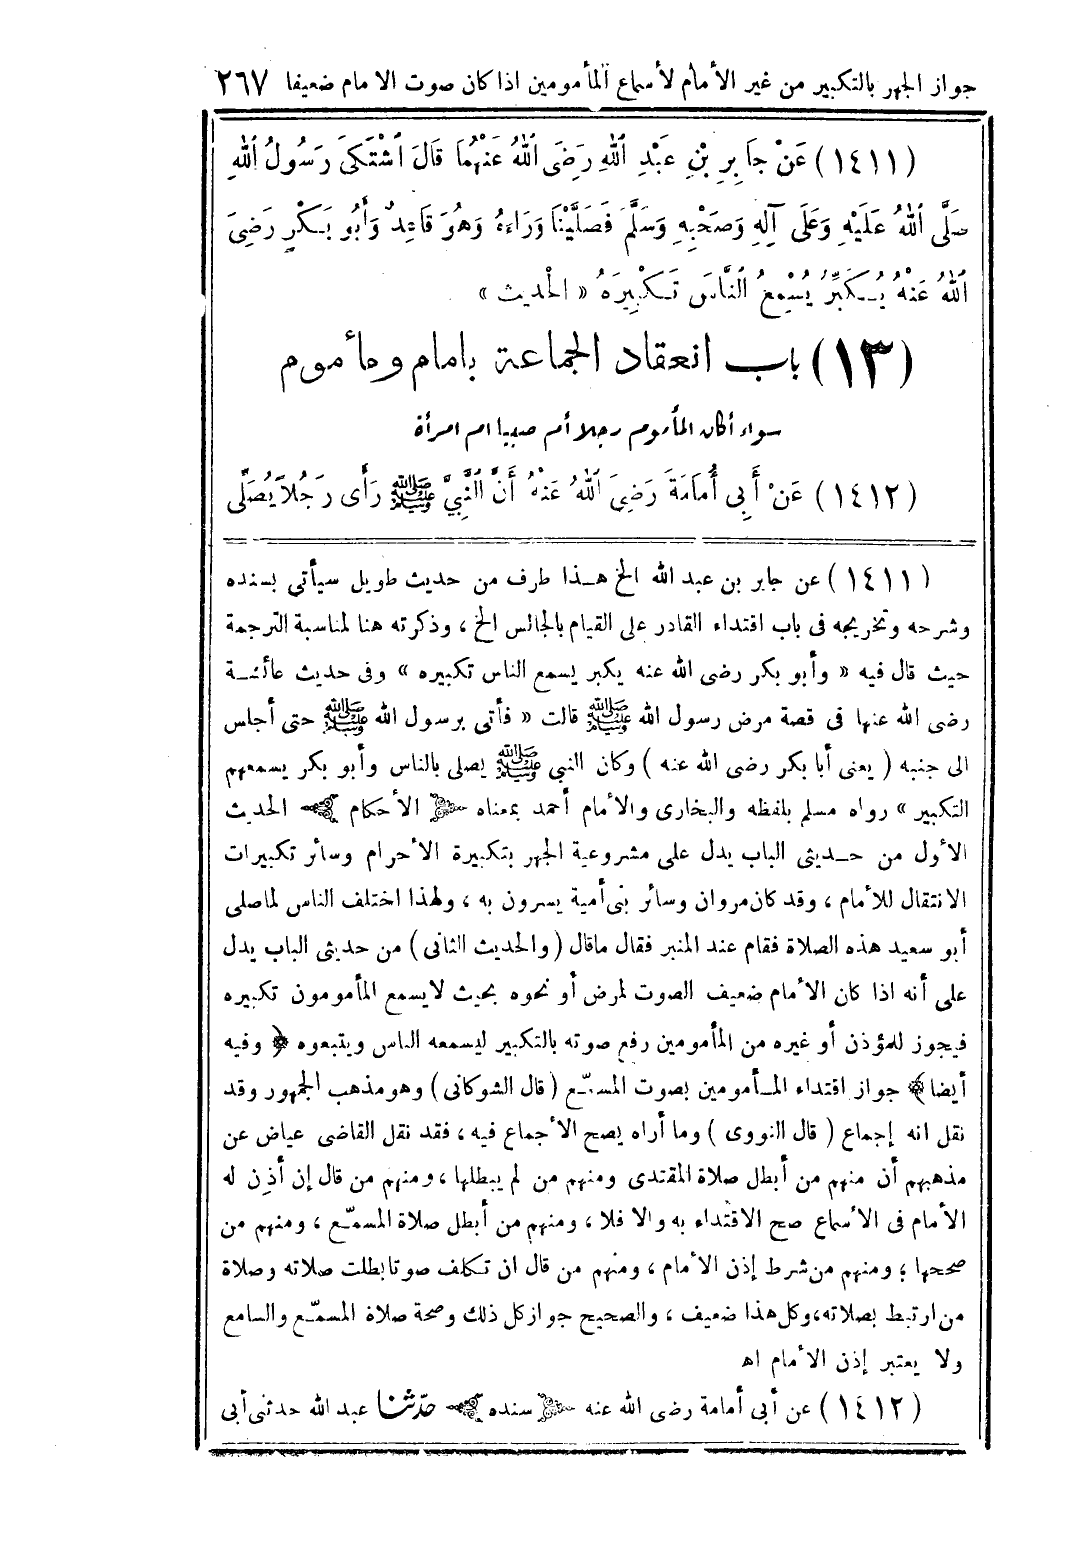 جواز الجهر بالتكبير من غير الأمام لأسماع المأمومين اذا كان صوت الامام ضعيفا ٢٦٧
(١٤١١) عَنْ جَابِرِ بْنِ عَبْدِ ٱللهِ رَضَىَ ٱللهُ عَنْهُمَا قَالَ ٱشْتَكَىَ رَسُولُ ٱللهِ
صَلَّى ٱللهُ عَلَيْهِ وَعَلَى آلِهِ وَصَحْبِهِ وَسَلَّمَ فَصَلَّيْنَا وَرَاءَهُ وَهُوَ قَاعِدٌ وَأَبُو بَكْرٍ رَضِىَ
ٱللهُ عَنْهُ يُكَبِّرُ يُسْمِعُ ٱلنَّاسَ تَكْبِيرَهُ « الْحديث »
(١٣) باب انعقاد الجماعة بامام ومأموم
سواء أكان المأموم رجلا أم صبيا ام امرأة
(١٤١٢) عَنْ أَبِى أُمَامَةَ رَضِىَ ٱللهُ عَنْهُ أَنَّ ٱلنَّبِىَّ ﷺ رَأَى رَجُلاً يُصَلِّى
(١٤١١) عن جابر بن عبد الله الخ هذا طرف من حديث طويل سيأتى بسنده
وشرحه وتخريجه فى باب اقتداء القادر على القيام بالجالس الخ ، وذكرته هنا لمناسبة الترجمة
حيث قال فيه « وأبو بكر رضى الله عنه يكبر يسمع الناس تكبيره » وفى حديث عائشة
رضى الله عنها فى قصة مرض رسول الله ﷺ قالت « فأتى برسول الله ﷺ حتى أجلس
الى جنبه ( يعنى أبا بكر رضى الله عنه ) وكان النبى ﷺ يصلى بالناس وأبو بكر يسمعهم
التكبير » رواه مسلم بلفظه والبخارى والأمام أحمد بمعناه ﴿ الأحكام ﴾ الحديث
الأول من حديثى الباب يدل على مشروعية الجهر بتكبيرة الأحرام وسائر تكبيرات
الانتقال للأمام ، وقد كان مروان وسائر بنى أمية يسرون به ، ولهذا اختلف الناس لما صلى
أبو سعيد هذه الصلاة فقام عند المنبر فقال ما قال ( والحديث الثانى ) من حديثى الباب يدل
على أنه اذا كان الأمام ضعيف الصوت لمرض أو نحوه بحيث لا يسمع المأمومون تكبيره
فيجوز للمؤذن أو غيره من المأمومين رفع صوته بالتكبير ليسمعه الناس ويتبعوه ﴿ وفيه
أيضا ﴾ جواز اقتداء المأمومين بصوت المسمّع ( قال الشوكانى ) وهو مذهب الجمهور وقد
نقل انه إجماع ( قال النووى ) وما أراه يصح الأجماع فيه ، فقد نقل القاضى عياض عن
مذهبهم أن منهم من أبطل صلاة المقتدى ومنهم من لم يبطلها ، ومنهم من قال إن أذِن له
الأمام فى الأسماع صح الاقتداء به والا فلا ، ومنهم من أبطل صلاة المسمّع ، ومنهم من
صححها ؛ ومنهم من شرط إذن الأمام ، ومنهم من قال ان تكلف صوتا بطلت صلاته وصلاة
من ارتبط بصلاته، وكل هذا ضعيف ، والصحيح جواز كل ذلك وصحة صلاة المسمّع والسامع
ولا يعتبر إذن الأمام اھ
(١٤١٢) عن أبى أمامة رضى الله عنه ﴿ سنده ﴾ حدّثنا عبد الله حدثنى أبى